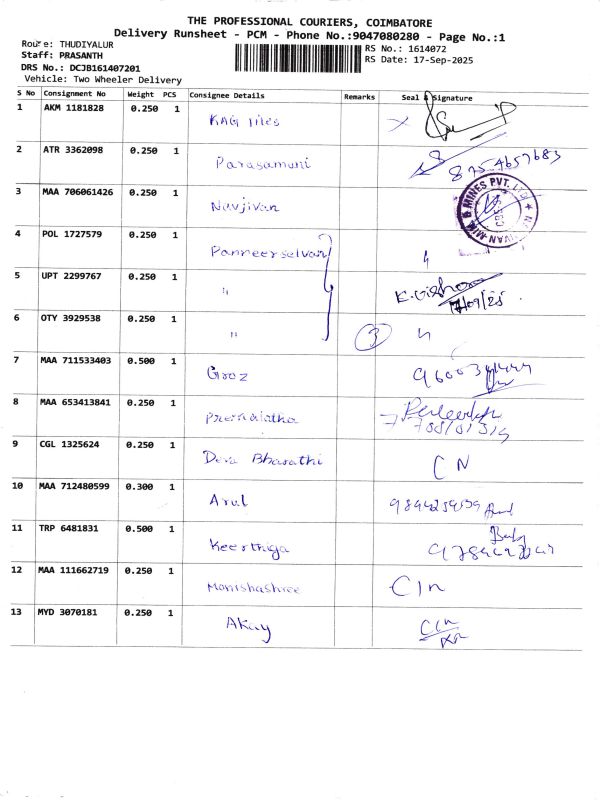 THE PROFESSIONAL COURIERS, COIMBATORE
Delivery Runsheet - PCM - Phone No.:9047080280 - Page No.:1
Route: THUDIYALUR
RS No.: 1614072
Staff: PRASANTH
RS Date: 17-Sep-2025
DRS No.: DCJB161407201
Vehicle: Two Wheeler Delivery
S No Consignment No Weight PCS Consignee Details Remarks Seal & Signature
1 AKM 1181828 0.250 1 KAG Tiles
2 ATR 3362098 0.250 1 Parasamuni 8754657683
3 MAA 706061426 0.250 1 Navjivan
4 POL 1727579 0.250 1 Panneerselvam
5 UPT 2299767 0.250 1 " 17/09/25
6 OTY 3929538 0.250 1 " 3
7 MAA 711533403 0.500 1 Groz
8 MAA 653413841 0.250 1 Premalatha
9 CGL 1325624 0.250 1 Deva Bharathi CN
10 MAA 712480599 0.300 1 Arul
11 TRP 6481831 0.500 1 Keerthiga
12 MAA 111662719 0.250 1 Monishashree C/n
13 MYD 3070181 0.250 1 Akay C/n